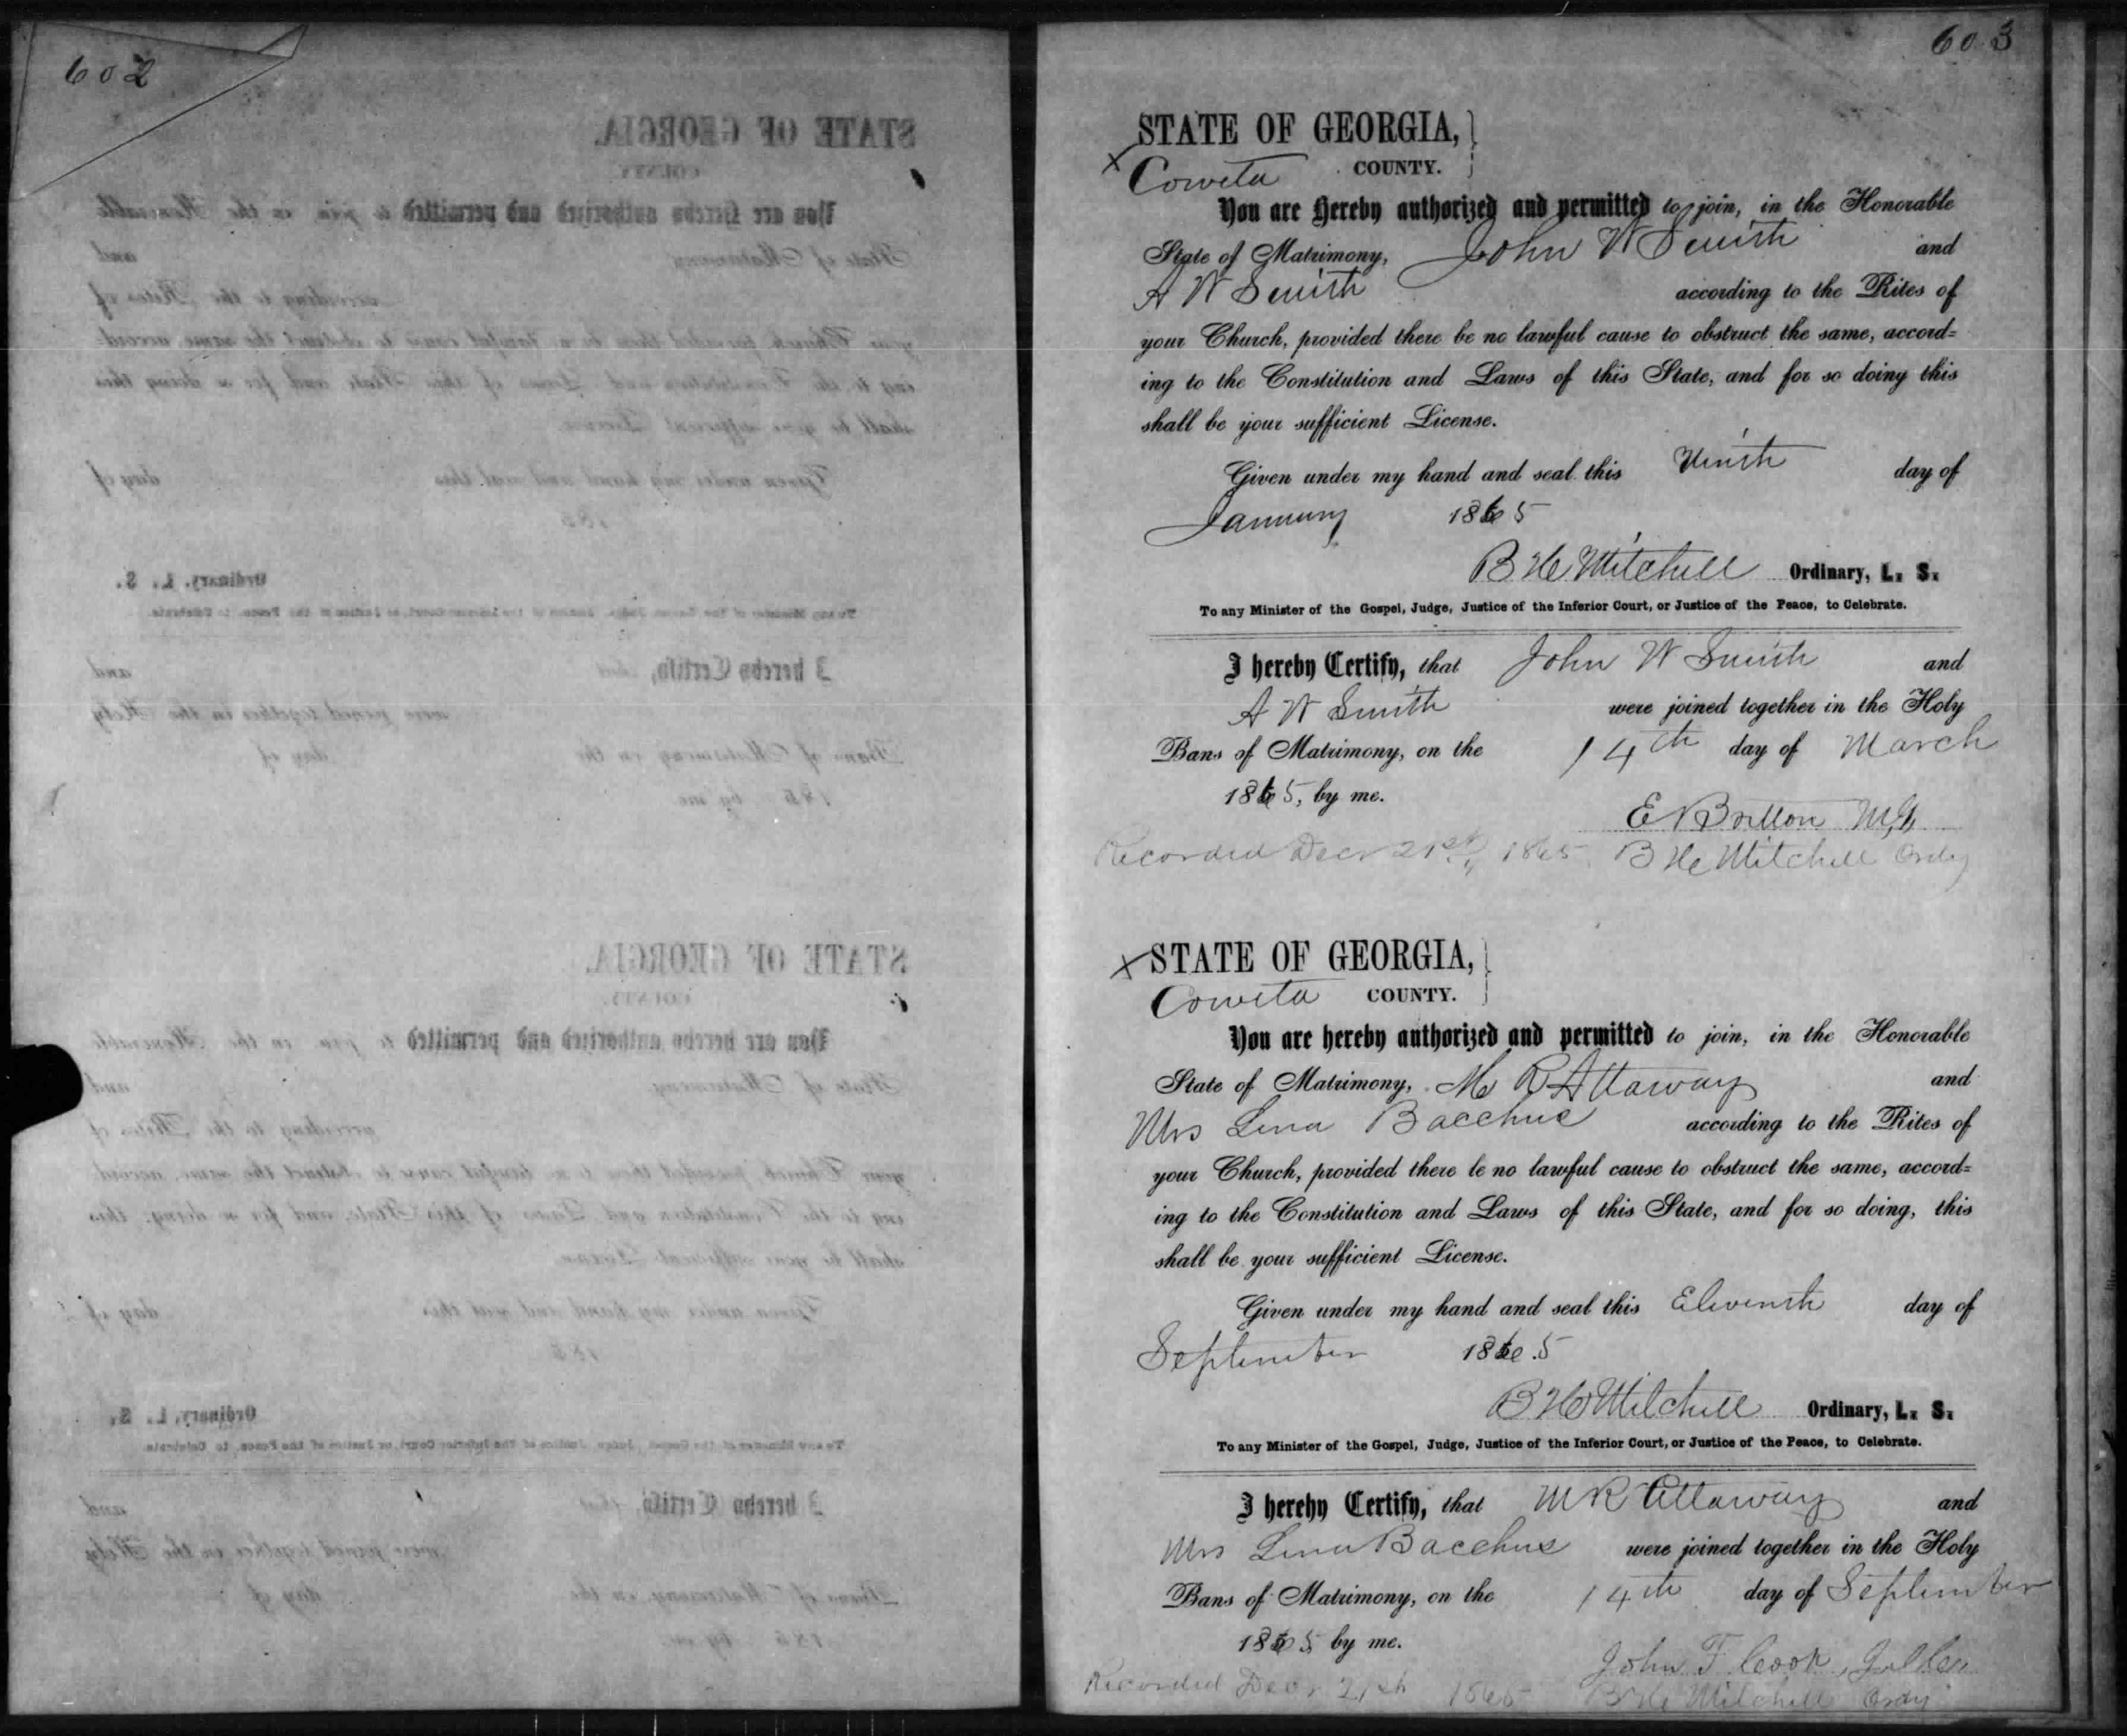 602
603
STATE OF GEORGIA,
Coweta COUNTY.
You are Hereby authorized and permitted to join, in the Honorable
State of Matrimony, John W Smith and
A W Smith according to the Rites of
your Church, provided there be no lawful cause to obstruct the same, accord=
ing to the Constitution and Laws of this State, and for so doing this
shall be your sufficient License.
Given under my hand and seal this Ninth day of
January 1865
B H Mitchell Ordinary, L. S.
To any Minister of the Gospel, Judge, Justice of the Inferior Court, or Justice of the Peace, to Celebrate.
I hereby Certify, that John W Smith and
A W Smith were joined together in the Holy
Bans of Matrimony, on the 14th day of March
1865, by me.
E Britton M,G,
Recorded Decr 21st, 1865. B H Mitchell Ordy
STATE OF GEORGIA,
Coweta COUNTY.
You are hereby authorized and permitted to join, in the Honorable
State of Matrimony, M R Attaway and
Mrs Lena Bacchus according to the Rites of
your Church, provided there be no lawful cause to obstruct the same, accord=
ing to the Constitution and Laws of this State, and for so doing, this
shall be your sufficient License.
Given under my hand and seal this Eleventh day of
September 1865
B H Mitchell Ordinary, L. S.
To any Minister of the Gospel, Judge, Justice of the Inferior Court, or Justice of the Peace, to Celebrate.
I hereby Certify, that M R Attaway and
Mrs Lena Bacchus were joined together in the Holy
Bans of Matrimony, on the 14th day of September
1865, by me.
John F Cook,
Recorded Decr 21st 1865 B H Mitchell Ordy